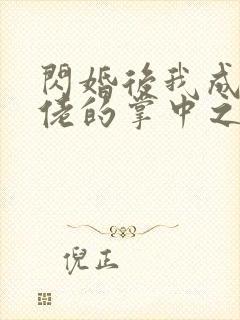 閃婚後我成
佬的掌中之
倪正